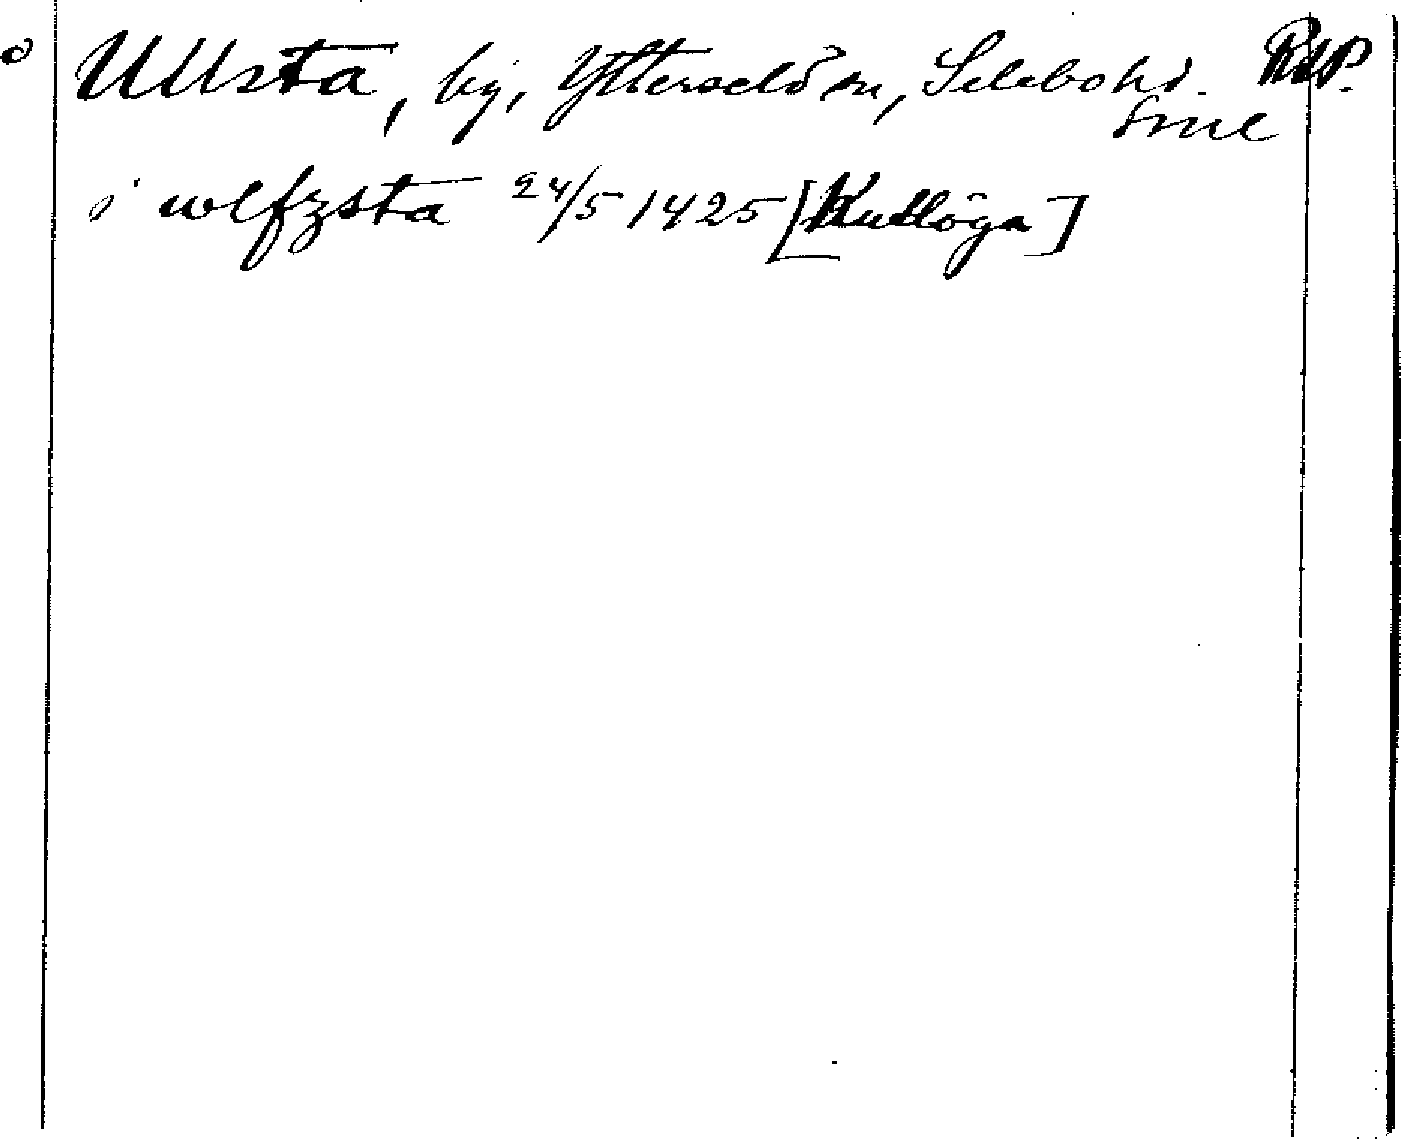 Ullsta, by, Ytterselö sn, Selebo hd. RAP.
Srml
i wlfzsta 24/5 1425 [Kutlöga]